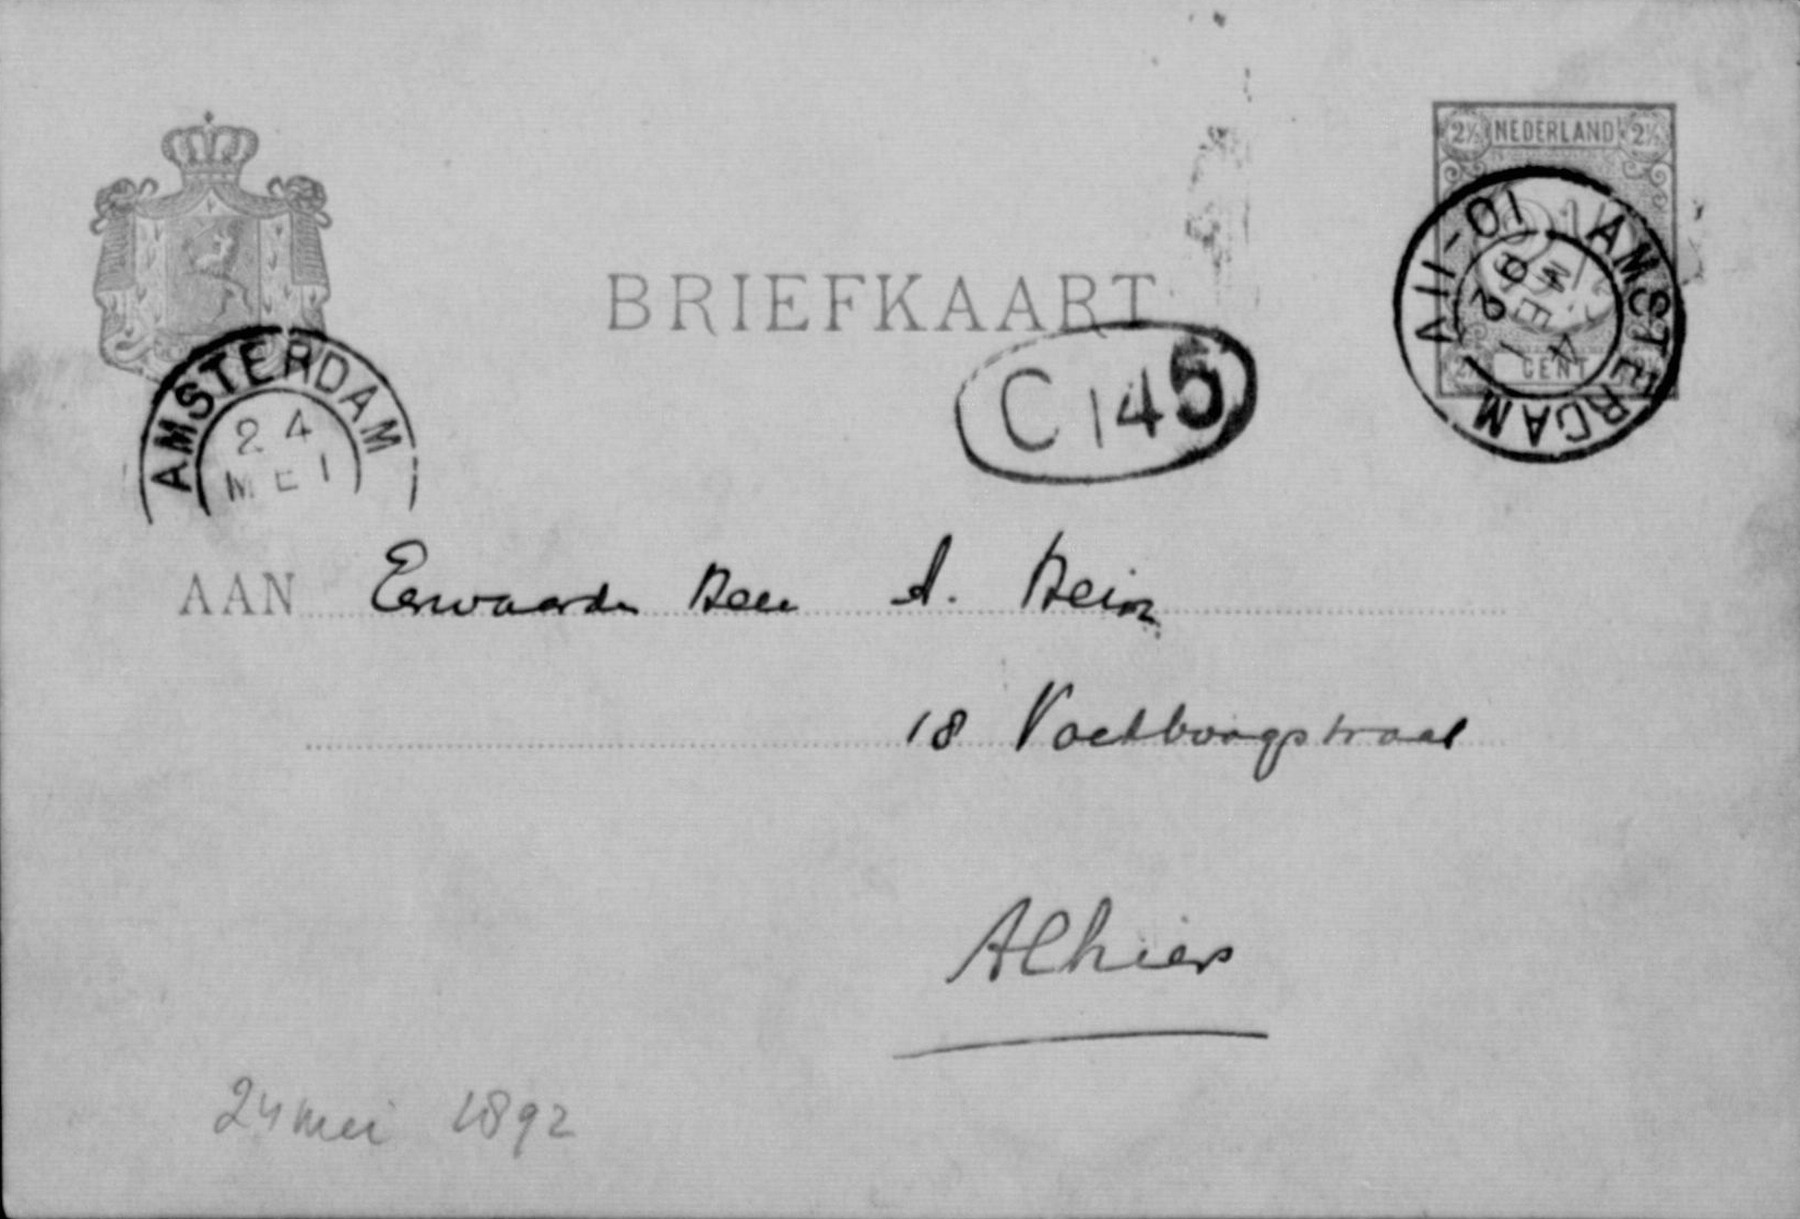 2½ NEDERLAND 2½
CENT
AMSTERDAM
24 MEI 92
VII-10
BRIEFKAART
C 145
AMSTERDAM
24
MEI
AAN Eerwaarde Heer A. Hein
18 Voetboogstraat
Alhier
24 mei 1892